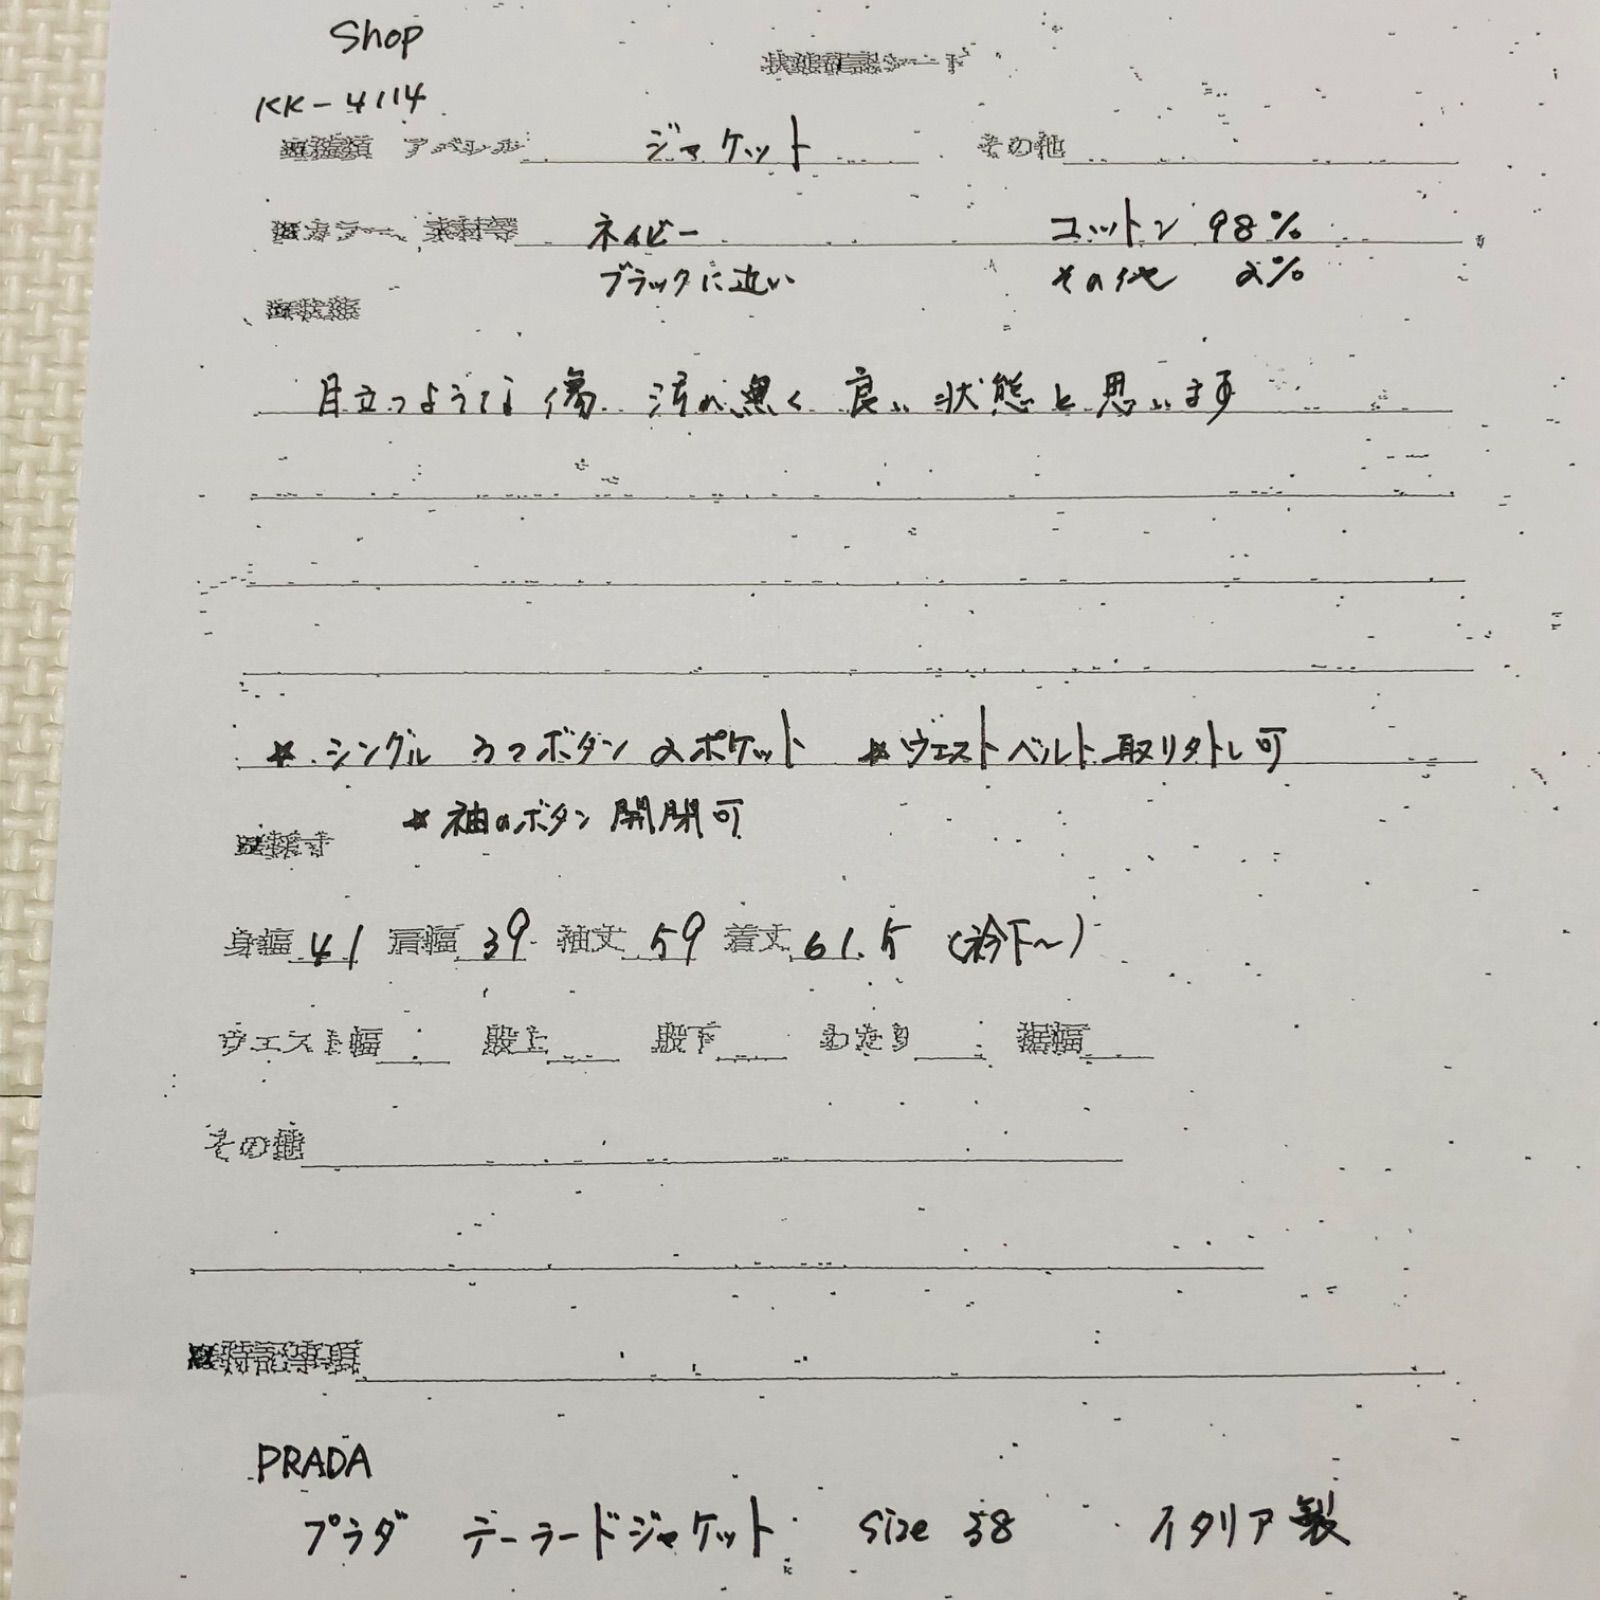 Shop
状態確認シート
KK-4114
※種類 アパレル ジャケット その他
※カラー、素材等 ネイビー コットン 98%
ブラックに近い その他 2%
※状態
目立つような傷 汚れ無く 良い状態と思います
☆シングル 3つボタン 2ポケット ☆ウエストベルト取り外し可
☆袖のボタン開閉可
※採寸
身幅 41 肩幅 39 袖丈 59 着丈 61.5 (衿下〜)
ウエスト幅 股上 股下 わたり 裾幅
その他
※特記事項
PRADA
プラダ テーラードジャケット size 38 イタリア製